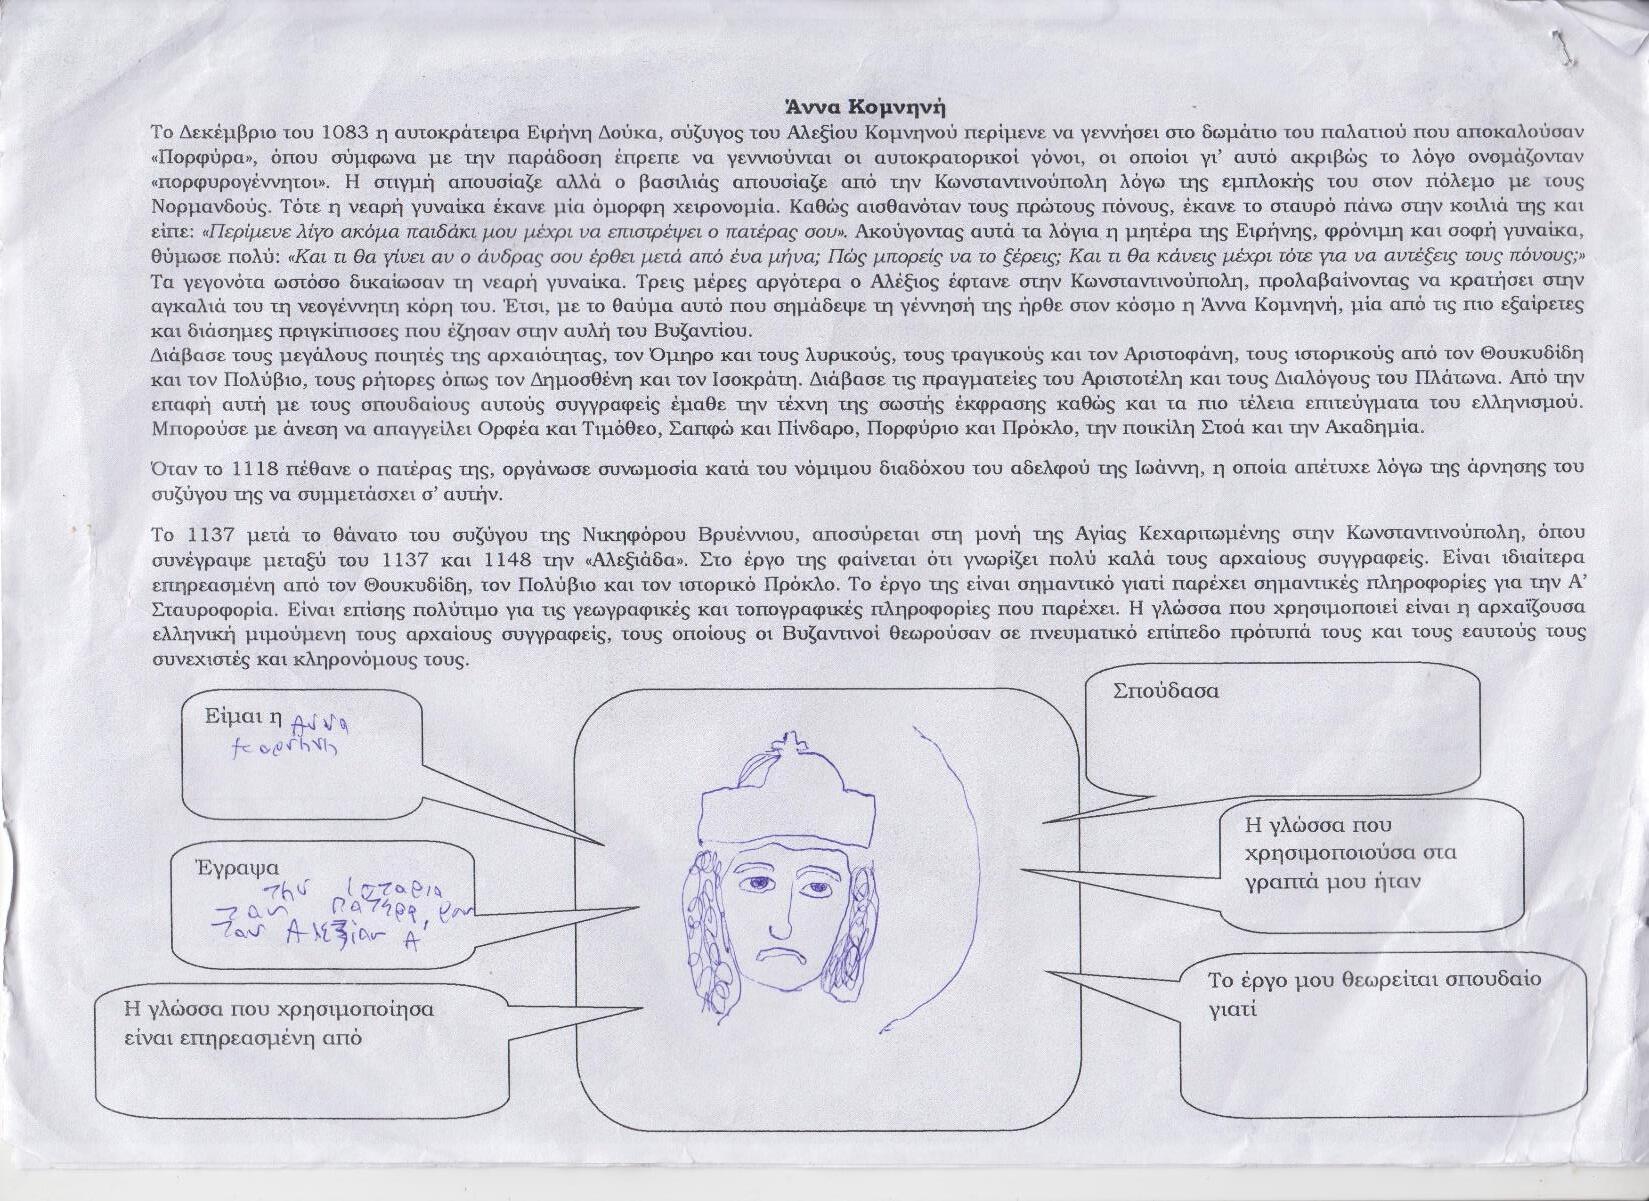 Άννα Κομνηνή
Το Δεκέμβριο του 1083 η αυτοκράτειρα Ειρήνη Δούκα, σύζυγος του Αλεξίου Κομνηνού περίμενε να γεννήσει στο δωμάτιο του παλατιού που αποκαλούσαν
«Πορφύρα», όπου σύμφωνα με την παράδοση έπρεπε να γεννιούνται οι αυτοκρατορικοί γόνοι, οι οποίοι γι' αυτό ακριβώς το λόγο ονομάζονταν
«πορφυρογέννητοι». Η στιγμή απουσίαζε αλλά ο βασιλιάς απουσίαζε από την Κωνσταντινούπολη λόγω της εμπλοκής του στον πόλεμο με τους
Νορμανδούς. Τότε η νεαρή γυναίκα έκανε μία όμορφη χειρονομία. Καθώς αισθανόταν τους πρώτους πόνους, έκανε το σταυρό πάνω στην κοιλιά της και
είπε: «Περίμενε λίγο ακόμα παιδάκι μου μέχρι να επιστρέψει ο πατέρας σου». Ακούγοντας αυτά τα λόγια η μητέρα της Ειρήνης, φρόνιμη και σοφή γυναίκα,
θύμωσε πολύ: «Και τι θα γίνει αν ο άνδρας σου έρθει μετά από ένα μήνα; Πώς μπορείς να το ξέρεις; Και τι θα κάνεις μέχρι τότε για να αντέξεις τους πόνους;»
Τα γεγονότα ωστόσο δικαίωσαν τη νεαρή γυναίκα. Τρεις μέρες αργότερα ο Αλέξιος έφτανε στην Κωνσταντινούπολη, προλαβαίνοντας να κρατήσει στην
αγκαλιά του τη νεογέννητη κόρη του. Έτσι, με το θαύμα αυτό που σημάδεψε τη γέννησή της ήρθε στον κόσμο η Άννα Κομνηνή, μία από τις πιο εξαίρετες
και διάσημες πριγκίπισσες που έζησαν στην αυλή του Βυζαντίου.
Διάβασε τους μεγάλους ποιητές της αρχαιότητας, τον Όμηρο και τους λυρικούς, τους τραγικούς και τον Αριστοφάνη, τους ιστορικούς από τον Θουκυδίδη
και τον Πολύβιο, τους ρήτορες όπως τον Δημοσθένη και τον Ισοκράτη. Διάβασε τις πραγματείες του Αριστοτέλη και τους Διαλόγους του Πλάτωνα. Από την
επαφή αυτή με τους σπουδαίους αυτούς συγγραφείς έμαθε την τέχνη της σωστής έκφρασης καθώς και τα πιο τέλεια επιτεύγματα του ελληνισμού.
Μπορούσε με άνεση να απαγγείλει Ορφέα και Τιμόθεο, Σαπφώ και Πίνδαρο, Πορφύριο και Πρόκλο, την ποικίλη Στοά και την Ακαδημία.
Όταν το 1118 πέθανε ο πατέρας της, οργάνωσε συνωμοσία κατά του νόμιμου διαδόχου του αδελφού της Ιωάννη, η οποία απέτυχε λόγω της άρνησης του
συζύγου της να συμμετάσχει σ' αυτήν.
Το 1137 μετά το θάνατο του συζύγου της Νικηφόρου Βρυέννιου, αποσύρεται στη μονή της Αγίας Κεχαριτωμένης στην Κωνσταντινούπολη, όπου
συνέγραψε μεταξύ του 1137 και 1148 την «Αλεξιάδα». Στο έργο της φαίνεται ότι γνωρίζει πολύ καλά τους αρχαίους συγγραφείς. Είναι ιδιαίτερα
επηρεασμένη από τον Θουκυδίδη, τον Πολύβιο και τον ιστορικό Πρόκλο. Το έργο της είναι σημαντικό γιατί παρέχει σημαντικές πληροφορίες για την Α'
Σταυροφορία. Είναι επίσης πολύτιμο για τις γεωγραφικές και τοπογραφικές πληροφορίες που παρέχει. Η γλώσσα που χρησιμοποιεί είναι η αρχαΐζουσα
ελληνική μιμούμενη τους αρχαίους συγγραφείς, τους οποίους οι Βυζαντινοί θεωρούσαν σε πνευματικό επίπεδο πρότυπά τους και τους εαυτούς τους
συνεχιστές και κληρονόμους τους.
Είμαι η Αννα
Έγραψα
την Ιστορια
του πατερα μου
του Αλεξιου Α'
Η γλώσσα που χρησιμοποίησα
είναι επηρεασμένη από
Σπούδασα
Η γλώσσα που
χρησιμοποιούσα στα
γραπτά μου ήταν
Το έργο μου θεωρείται σπουδαίο
γιατί